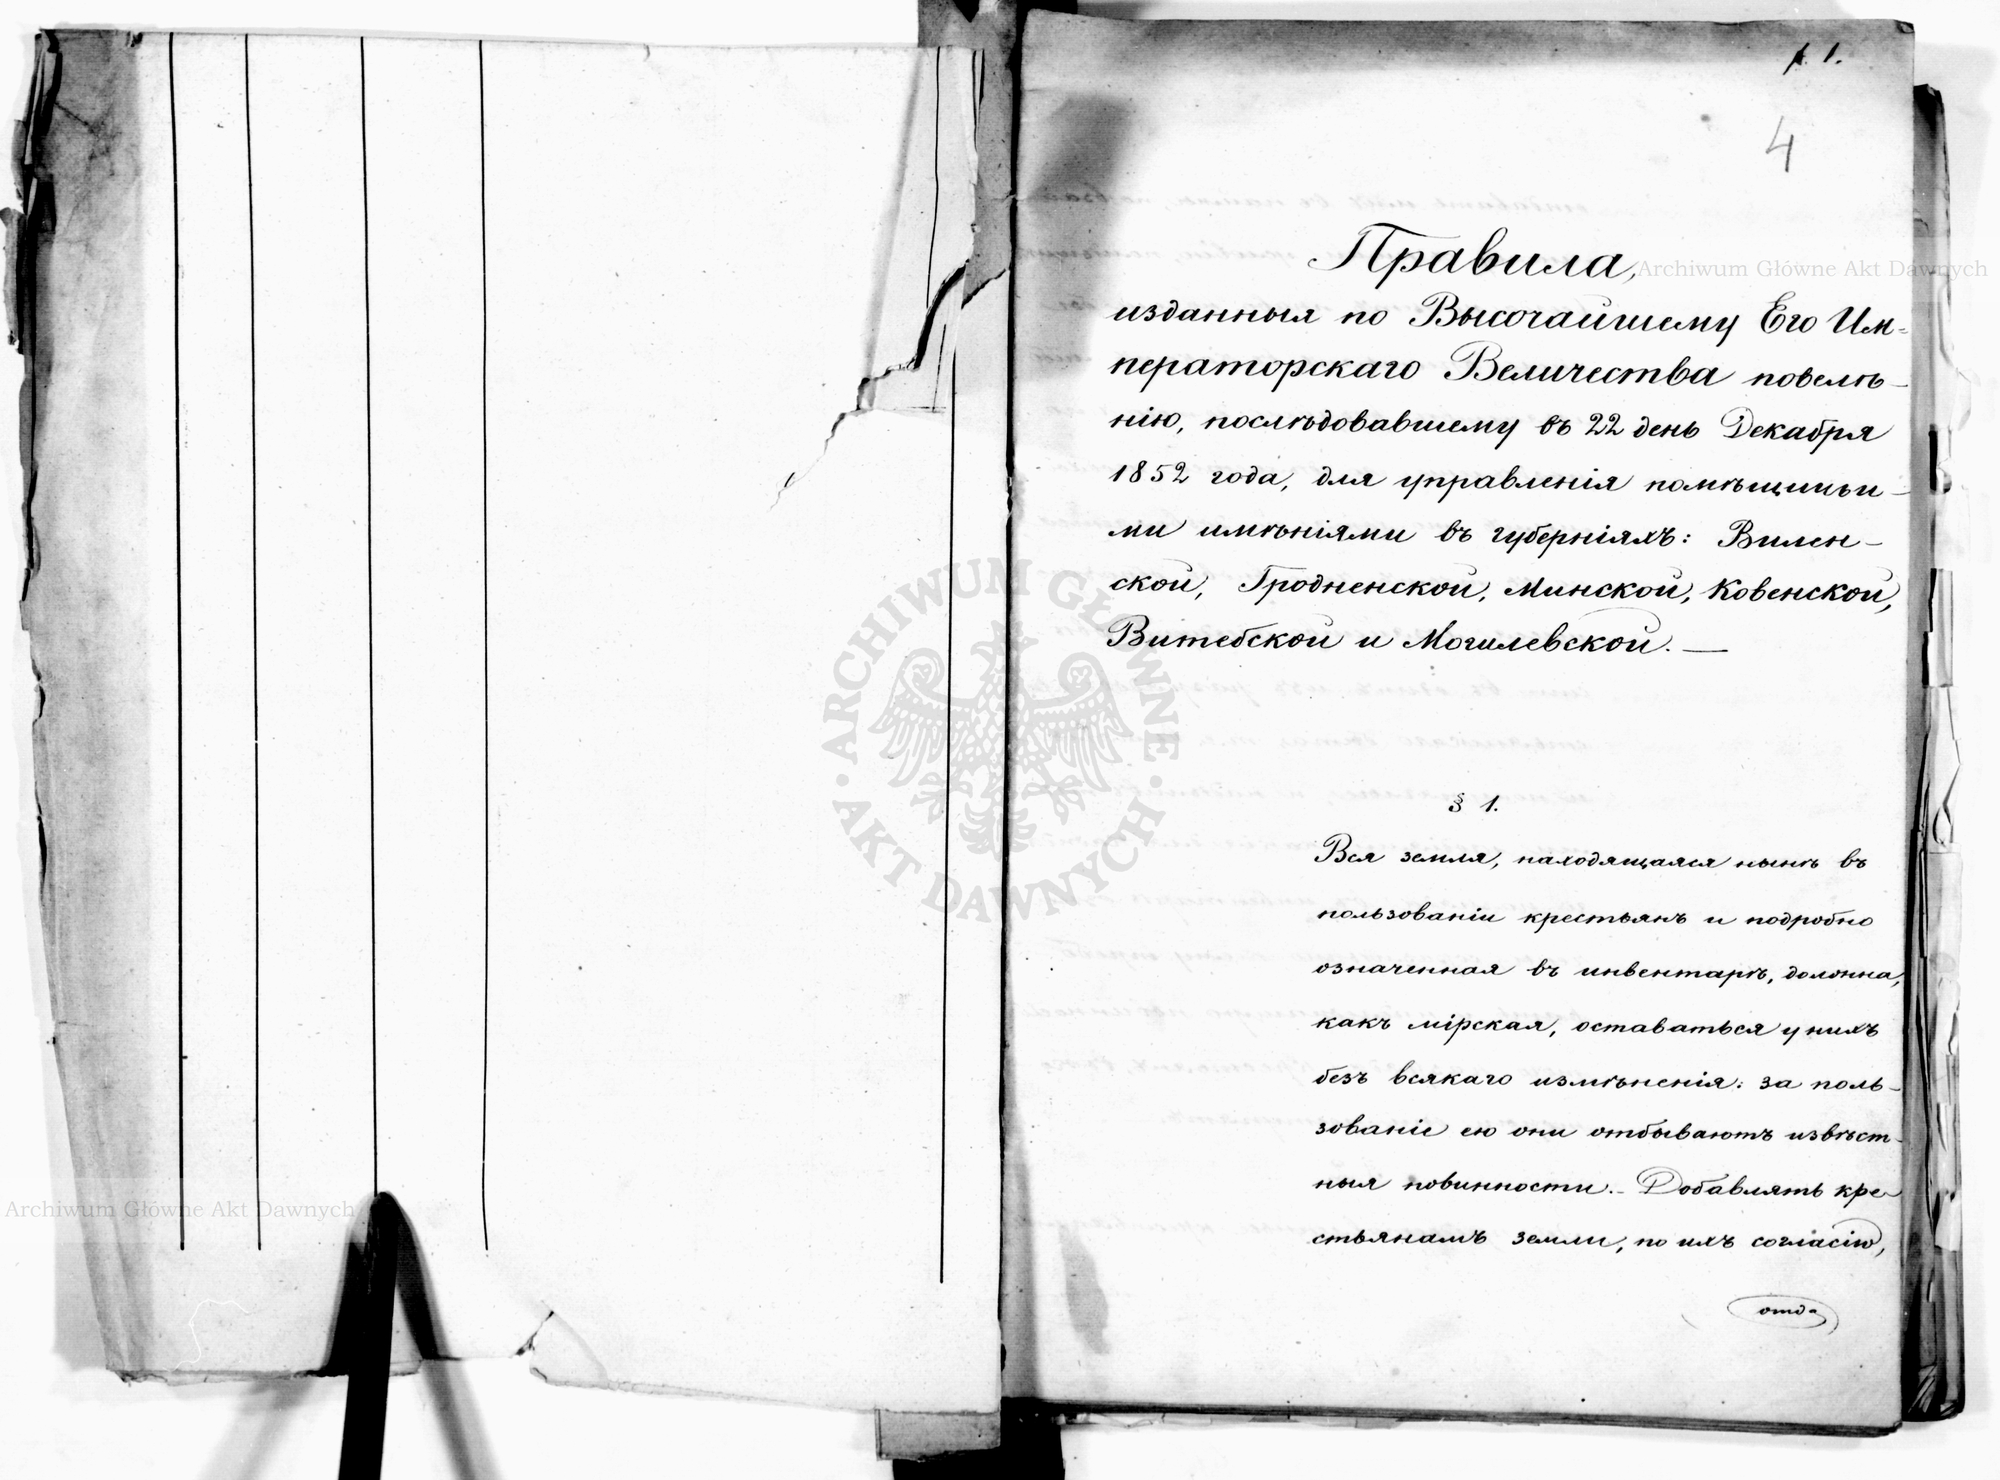 1.
4
Правила,
изданныя по Высочайшему Его Им-
ператорскаго Величества повелѣ-
нію, послѣдовавшему въ 22 день Декабря
1852 года, для управленія помѣщичьи-
ми имѣніями въ губерніяхъ: Вилен-
ской, Гродненской, Минской, Ковенской,
Витебской и Могилевской. —
§ 1.
Вся земля, находящаяся нынѣ въ
пользованіи крестьянъ и подробно
означенная въ инвентарѣ, должна,
какъ мірская, оставаться у нихъ
безъ всякаго измѣненія: за поль-
зованіе ею они отбываютъ извѣст-
ныя повинности. - Добавлять кре-
стьянамъ земли, по ихъ согласію,
отда-
Archiwum Główne Akt Dawnych
Archiwum Główne Akt Dawnych
ARCHIWUM GŁÓWNE · AKT DAWNYCH ·